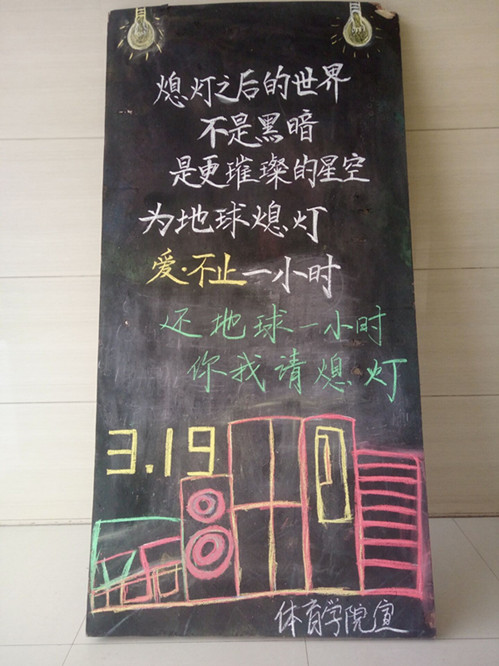 熄灯之后的世界
不是黑暗
是更璀璨的星空
为地球熄灯
爱·不止一小时
还地球一小时
你我请熄灯
3.19
体育学院宣